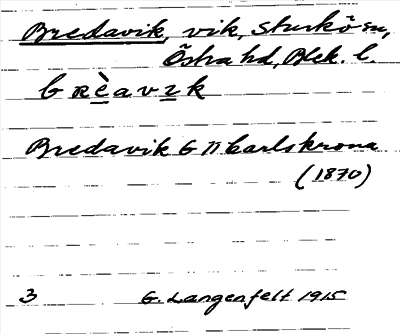 Bredavik, vik, Sturkö sn,
Östra hd, Blek. l.
brèavik
Bredavik G 11 Carlskrona
(1870)
3 G. Langenfelt 1915